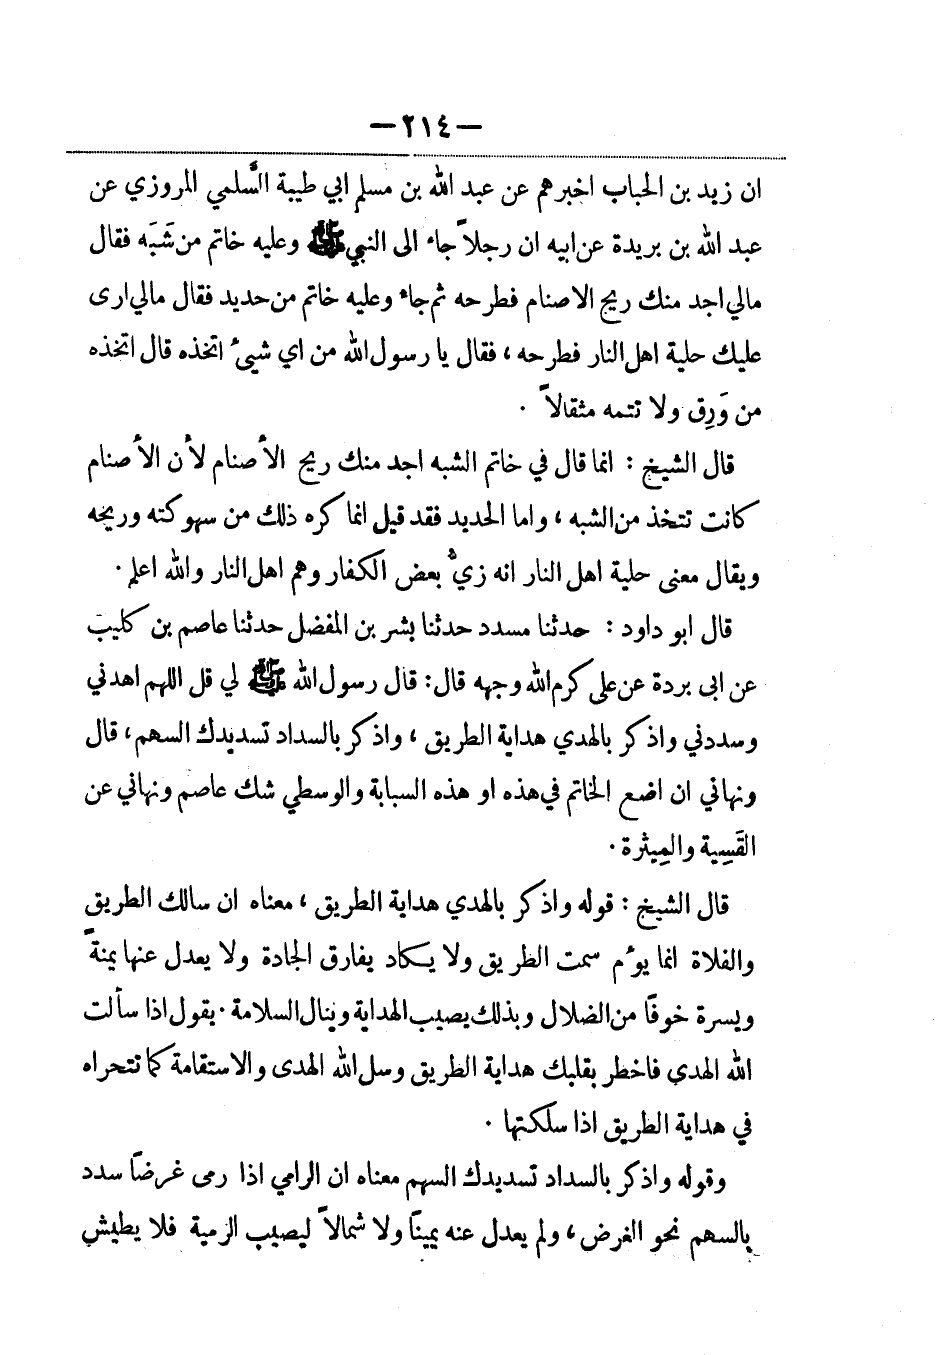 — ٢١٤ —
ان زيد بن الحباب اخبرهم عن عبد الله بن مسلم ابي طيبة السَّلمي المروزي عن
عبد الله بن بريدة عن ابيه ان رجلاً جاء الى النبي ﷺ وعليه خاتم من شَبَه فقال
مالي اجد منك ريح الاصنام فطرحه ثم جاء وعليه خاتم من حديد فقال مالي ارى
عليك حلية اهل النار فطرحه، فقال يا رسول الله من اي شيىء اتخذه قال اتخذه
من وَرِق ولا تتمه مثقالاً .
قال الشيخ : انما قال في خاتم الشبه اجد منك ريح الأصنام لأن الأصنام
كانت تتخذ من الشبه، واما الحديد فقد قيل انما كره ذلك من سهوكته وريحه
ويقال معنى حلية اهل النار انه زيُّ بعض الكفار وهم اهل النار والله اعلم .
قال ابو داود : حدثنا مسدد حدثنا بشر بن المفضل حدثنا عاصم بن كليب
عن ابى بردة عن على كرم الله وجهه قال : قال رسول الله ﷺ لي قل اللهم اهدني
وسددني واذكر بالهدي هداية الطريق، واذكر بالسداد تسديدك السهم، قال
ونهاني ان اضع الخاتم في هذه او هذه السبابة والوسطي شك عاصم ونهاني عن
القَسِية والمِيثرة .
قال الشيخ : قوله واذكر بالهدي هداية الطريق، معناه ان سالك الطريق
والفلاة انما يوءم سمت الطريق ولا يكاد يفارق الجادة ولا يعدل عنها يمنةً
ويسرة خوفًا من الضلال وبذلك يصيب الهداية وينال السلامة . يقول اذا سألت
الله الهدي فاخطر بقلبك هداية الطريق وسل الله الهدى والاستقامة كما تتحراه
في هداية الطريق اذا سلكتها .
وقوله واذكر بالسداد تسديدك السهم معناه ان الرامي اذا رمى غرضًا سدد
بالسهم نحو الغرض، ولم يعدل عنه يمينًا ولا شمالاً ليصيب الرمية فلا يطيش